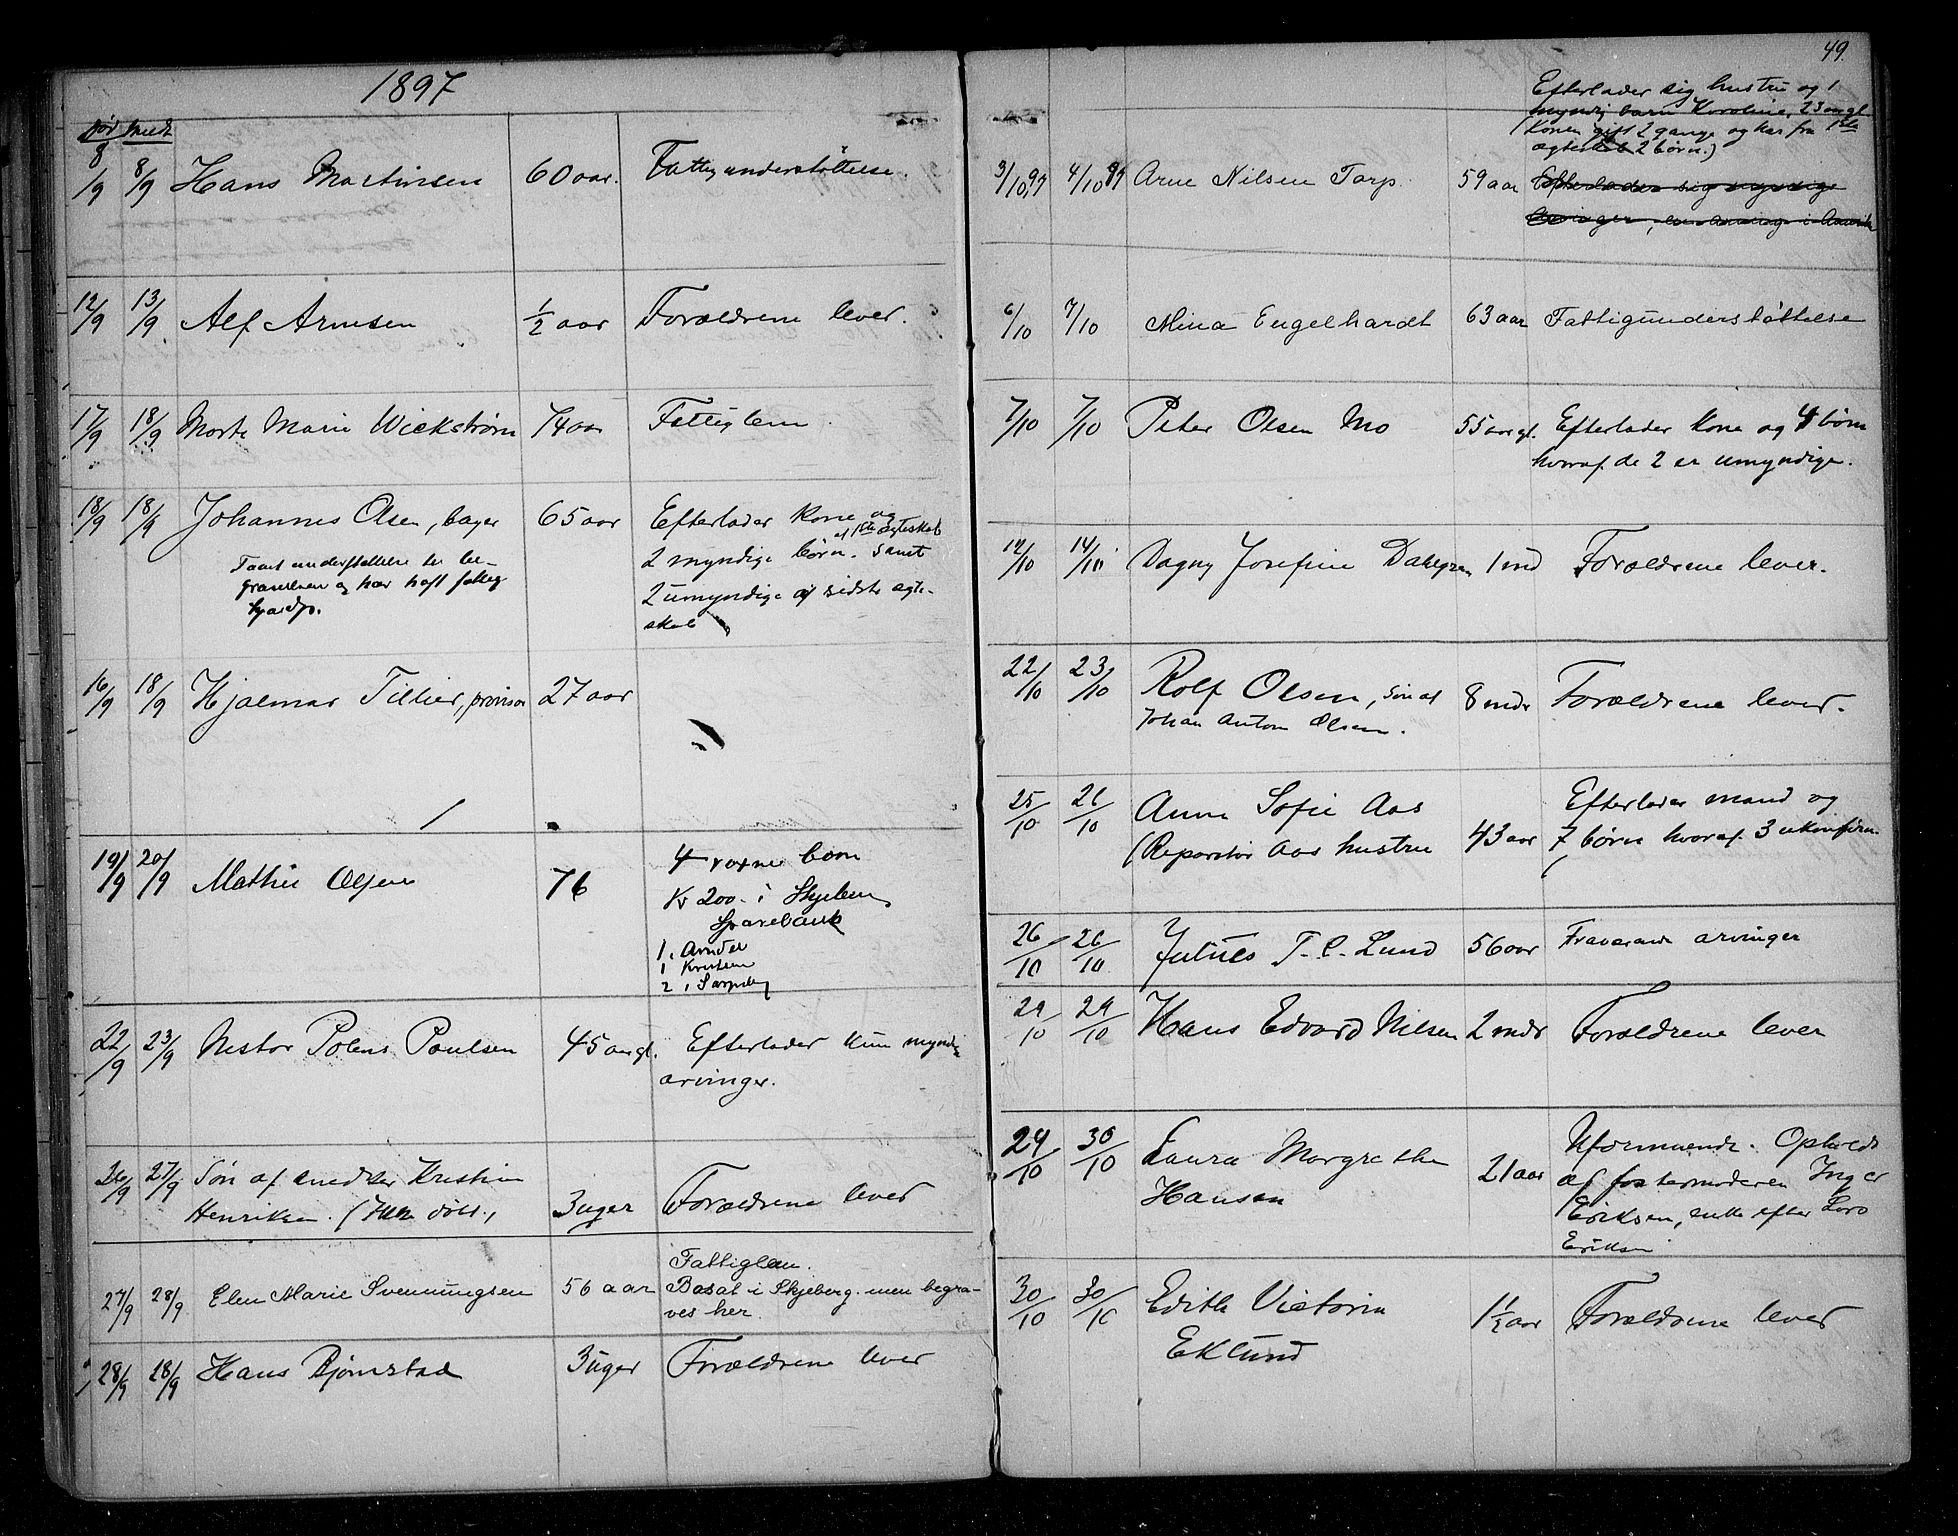 1897
død medt
8/9 8/9 Hans Martinsen 60 aar. Fattigunderstøttelse.
12/9 13/9 Alf Arnesen 1/2 aar Forældrene lever.
17/9 18/9 Marte Marie Wickstrøm 74 aar Fattiglem.
18/9 18/9 Johannes Olsen, bager 65 aar Efterlader kone og
af 1ste ægteskab
2 myndige børn. samt
2 umyndige af sidste ægte-
skab
Faaet understøttelse til be-
gravelsen og har haft fattig
16/9 18/9 Hjalmar Tillier, provisor 27 aar
19/9 20/9 Mathie Olsen 76 4 voxne børn
Kr 200.- i Skjeberg
Sparebank
1 i Arendal
1
2 i Sarpsborg
22/9 23/9 Nestor Polens Poulsen 45 aar gl. Efterlader kun myndige
arvinger.
26/9 27/9 Søn af snedker Kristian
Henriksen. (Ikke døbt.) 3 uger Forældrene lever
27/9 28/9 Elen Marie Svenningsen 56 aar Fattiglem.
Bosat i Skjeberg. men begra-
ves her.
28/9 28/9 Hans Bjørnstad 3 uger Forældrene lever
49.
Efterlader sig hustru og 1
myndig barn Karoline, 23 aar gl
(Konen gift 2 gange og har fra 1ste
ægteskab 2 børn.)
3/10 97 4/10 97 Arne Nilsen Tarp. 59 aar Efterlader sig myndige
arvinger, en arving i Amerika
6/10 7/10 Mina Engelhardt 63 aar Fattigunderstøttelse
7/10 7/10 Peter Olsen Mo 55 aar gl. Efterlader kone og 4 børn
hvoraf de 2 er umyndige.
12/10 14/10 Dagny Josefine Dahlgren 1 md Forældrene lever.
22/10 23/10 Rolf Olsen, søn af
Johan Anton Olsen. 8 mdr Forældrene lever.
25/10 26/10 Anna Sofie Aas
(Reparatør Aas hustru 43 aar Efterlader mand og
7 børn hvoraf 3 ukonfirm.
26/10 26/10 Julius T. C. Lund 56 aar Fraværende arvinger
29/10 29/10 Hans Edvard Nilsen 2 mdr Forældrene lever
29/10 30/10 Laura Margrethe
Hansen 21 aar Uformuende. Opholdt
af fostermoderen Inger
Eriksen, enke efter Lars
Eriksen
30/10 30/10 Edith Victoria
Eklund 1 1/2 aar Forældrene lever